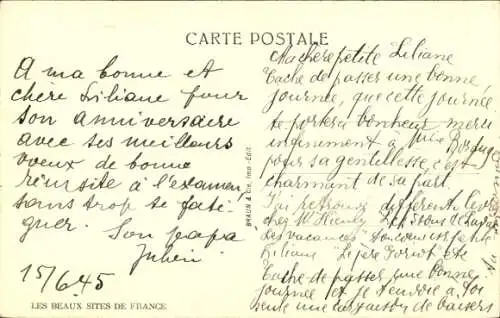 CARTE POSTALE
A ma bonne et
chère Liliane pour
son anniversaire
avec ses meilleurs
voeux de bonne
réussite à l'examen
sans trop se fati-
guer.
Son papa
Julien
15/6.45
LES BEAUX SITES DE FRANCE
BRAUN & Cie, Imp.-Edit.
Ma chère petite Liliane
Tache de passer une bonne
journée, que cette journée
te portera bonheur merci
infiniment à Mlle
pour sa gentillesse, c'est
charmant de sa part.
J'ai retrouvé différents livres
chez Mr
des vacances
Liliane "Le père Goriot" etc
Tache de passer une bonne
journée et je t'envoie à toi
seule une de baisers